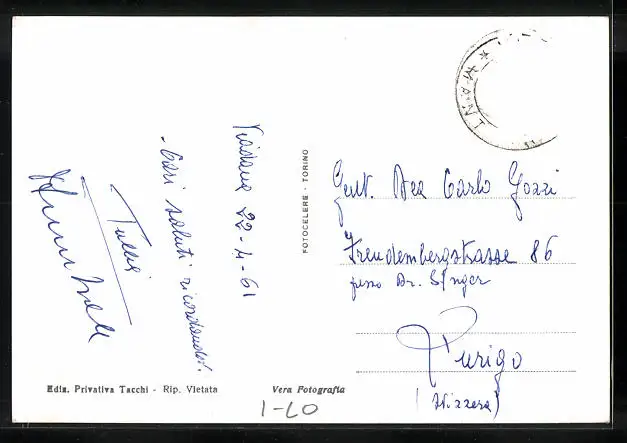 Viadana 22-4-61
- Cari saluti ricordandoti.
Tullia
FOTOCELERE - TORINO
Gent. Dea Carlo Gozzi
Freudembergstrasse 86
presso Dr. Singer
Zurigo
(Svizzera)
Ediz. Privativa Tacchi - Rip. Vietata
Vera Fotografia
1-LO